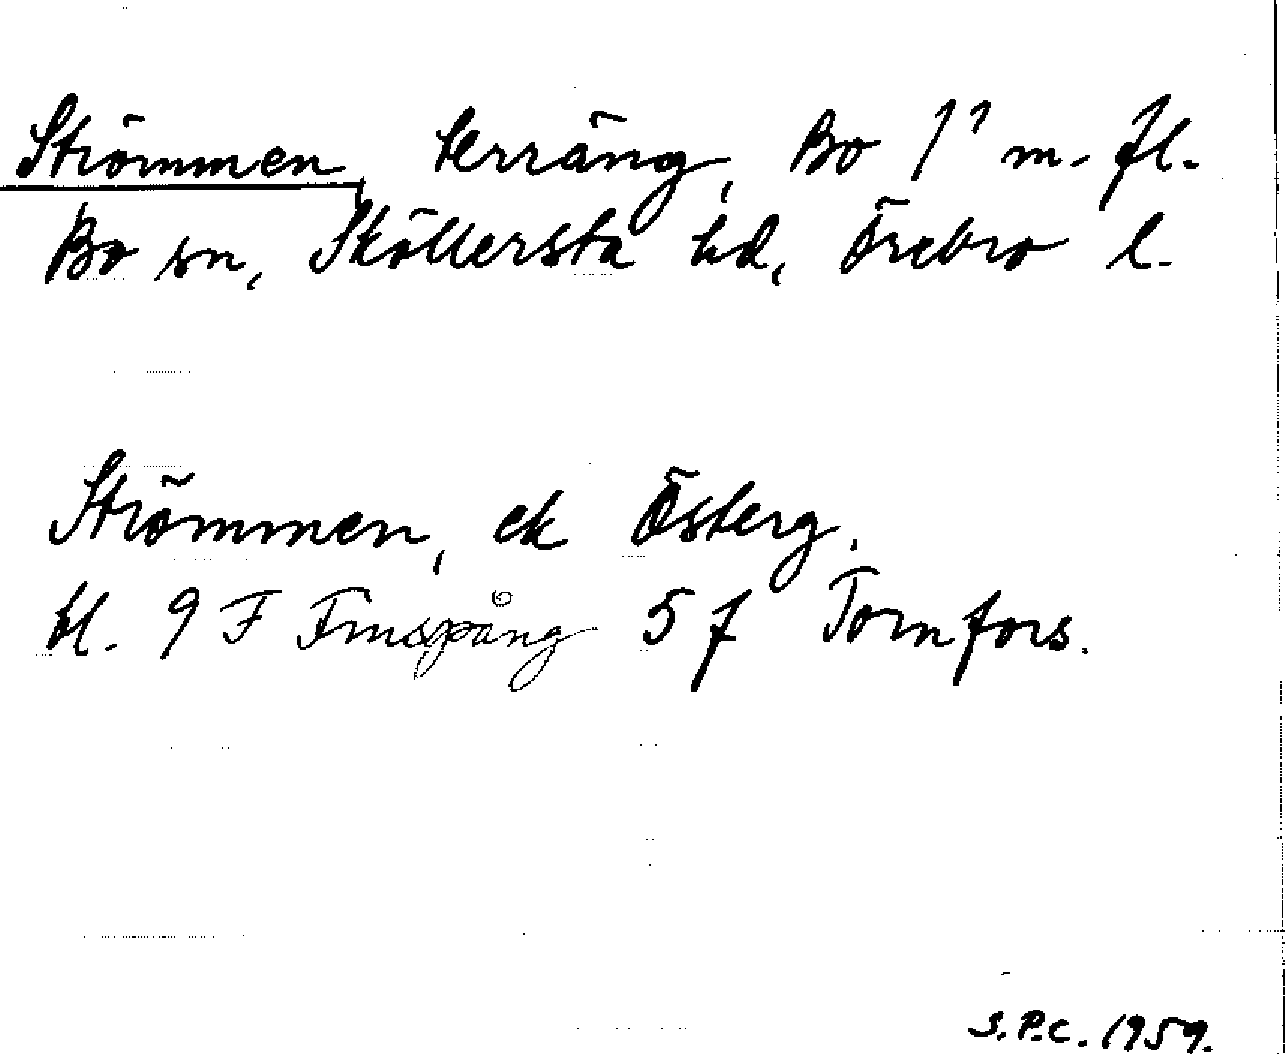 Strömmen, terräng, Bo 1¹ m. fl.
Bo sn, Sköllersta hd, Örebro l.
Strömmen, ek Österg.
bl. 9 F Finspång 5 f Tornfors.
S.P.C. 1959.